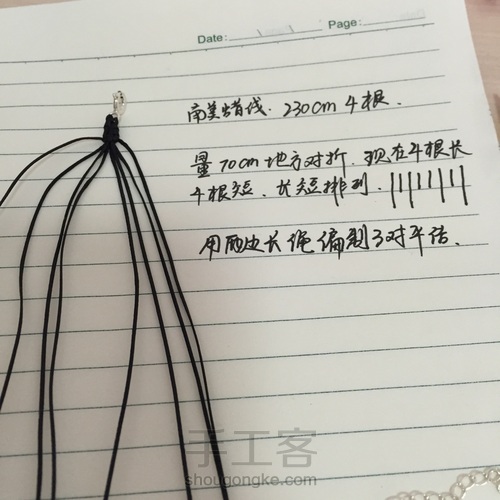 Date:
Page:
南美蜡线. 230cm 4根.
量70cm地方对折. 现在4根长
4根短. 长短排列.
用两边长绳编制3对平结.
手工客
shougongke.com